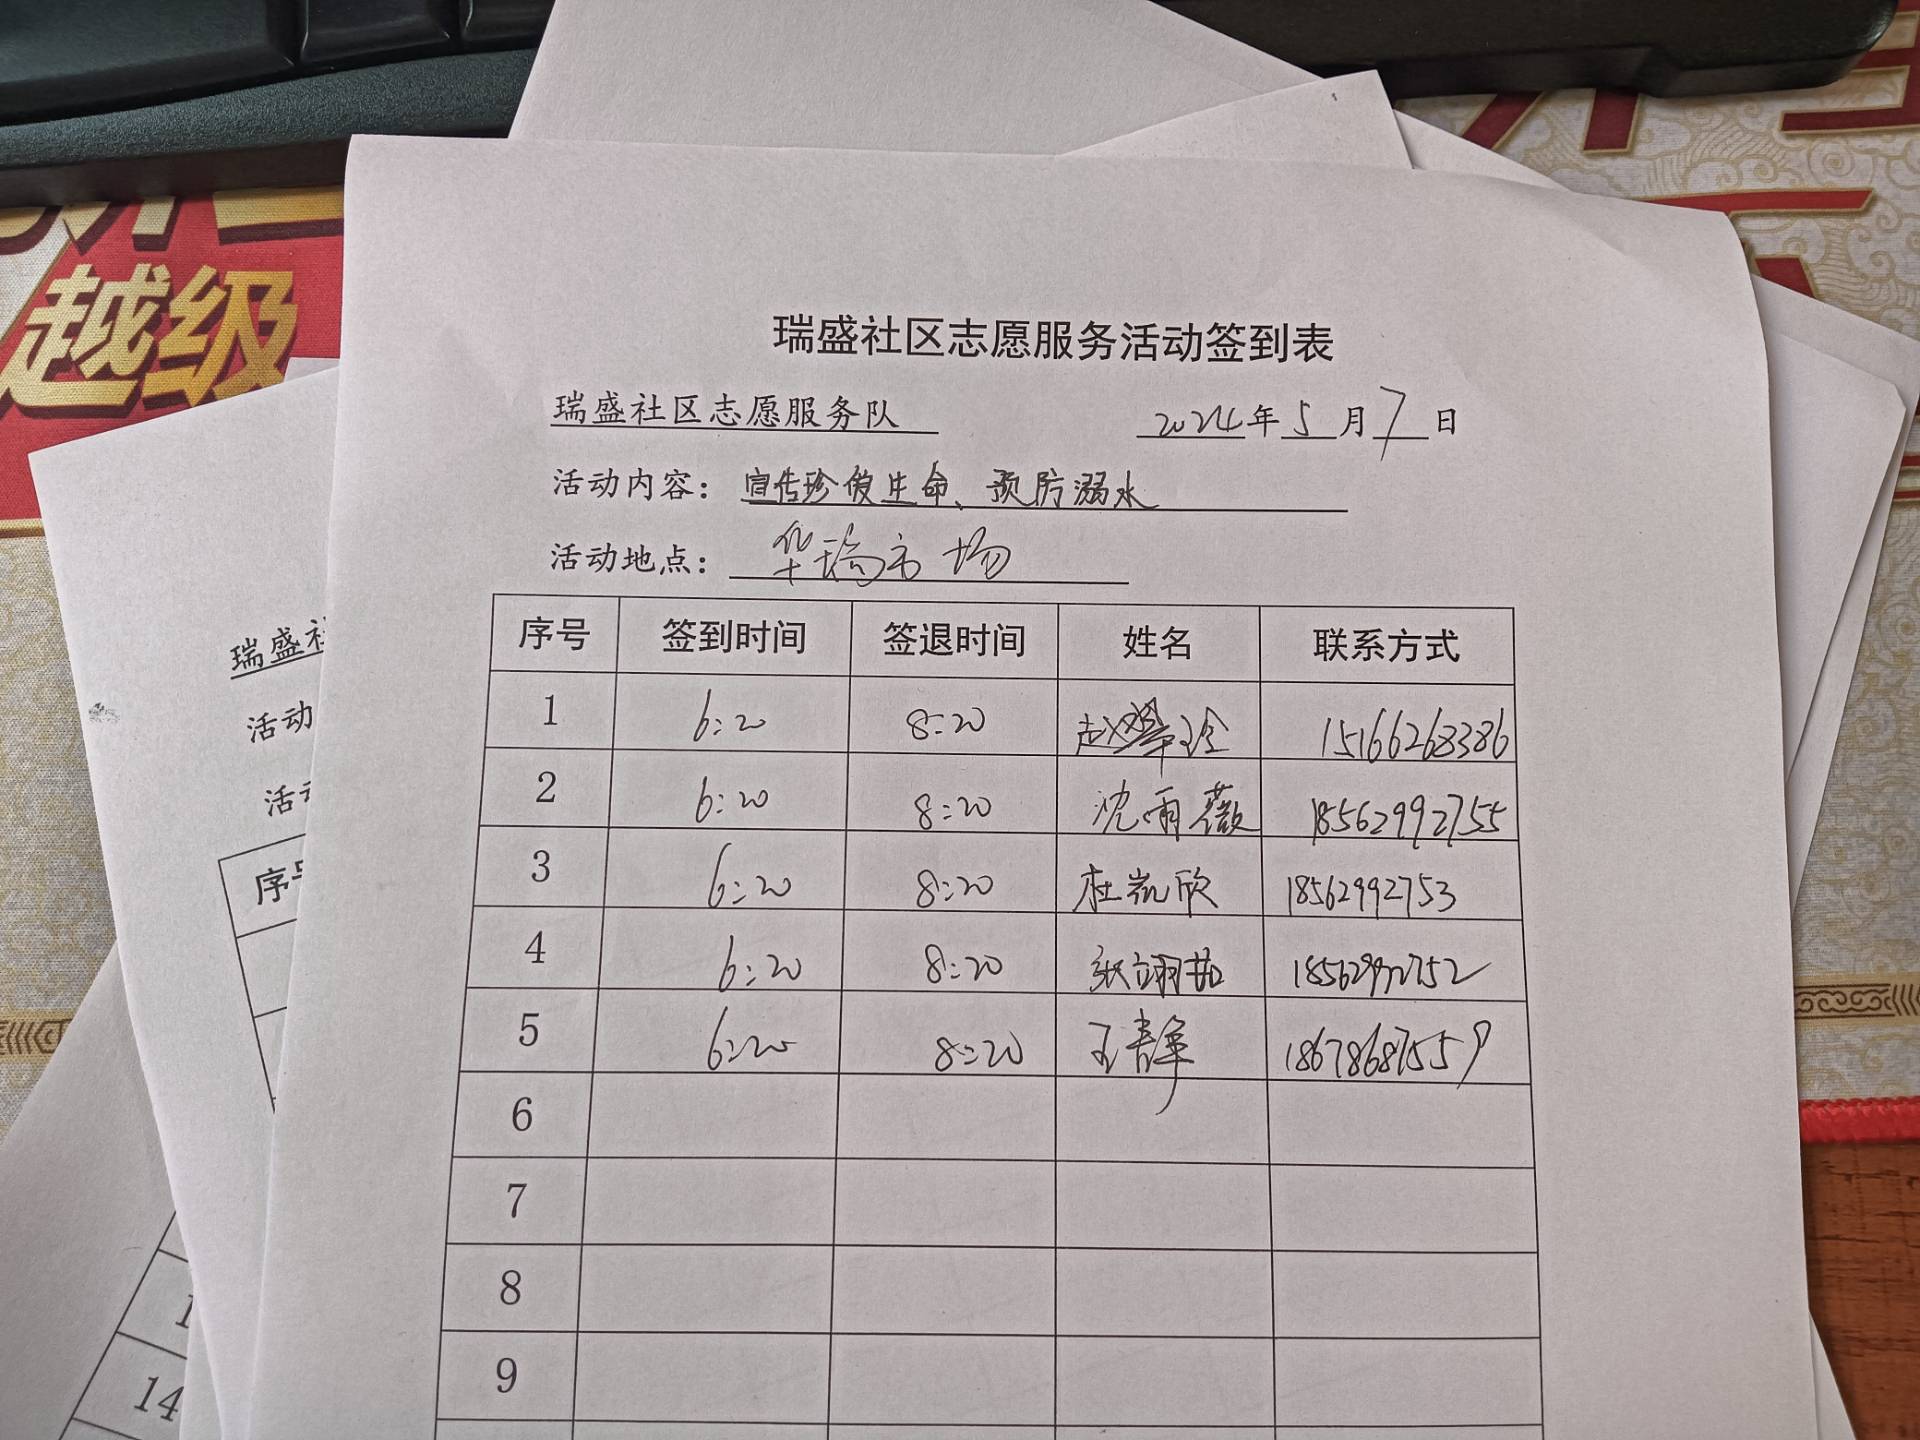 越级
瑞盛社区志愿服务活动签到表
瑞盛社区志愿服务队 2024年5月7日
活动内容：宣传珍爱生命、预防溺水
活动地点：华瑞市场
序号 签到时间 签退时间 姓名 联系方式
1 6:20 8:20 赵翠玲 15166268386
2 6:20 8:20 沈雨薇 18562992755
3 6:20 8:20 杜凯欣 18562992753
4 6:20 8:20 张翊茹 18562992752
5 6:20 8:20 王静 18678687559
6
7
8
9
瑞盛社
活动
活动
序号
14